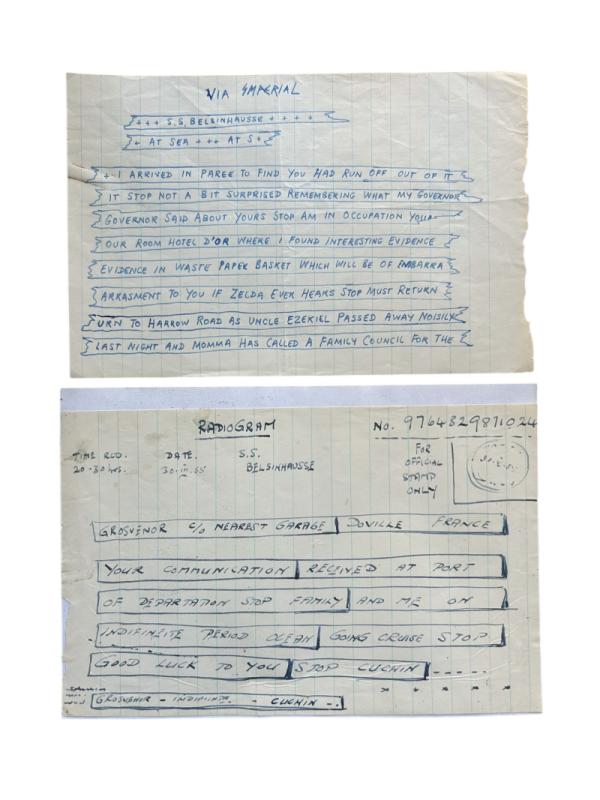 VIA IMPERIAL
+++ S.S. BELSINHAUSSE + + + +
+ AT SEA +++ AT S+
+ I ARRIVED IN PAREE TO FIND YOU HAD RUN OFF OUT OF IT
IT STOP NOT A BIT SURPRISED REMEMBERING WHAT MY GOVERNOR
GOVERNOR SAID ABOUT YOURS STOP AM IN OCCUPATION YOUR
OUR ROOM HOTEL D'OR WHERE I FOUND INTERESTING EVIDENCE
EVIDENCE IN WASTE PAPER BASKET WHICH WILL BE OF EMBARRA
ARRASMENT TO YOU IF ZELDA EVER HEARS STOP MUST RETURN
URN TO HARROW ROAD AS UNCLE EZEKIEL PASSED AWAY NOISILY
LAST NIGHT AND MOMMA HAS CALLED A FAMILY COUNCIL FOR THE
RADIOGRAM
No. 9764329871024
TIME RCD. DATE. S.S. FOR
20.30 hrs. 30.III.55 BELSINHAUSSE OFFICIAL
STAMP
ONLY
GROSVENOR C/O NEAREST GARAGE DOVILLE FRANCE
YOUR COMMUNICATION RECEIVED AT PORT
OF DEPARTATION STOP FAMILY AND ME ON
INDIFINEITE PERIOD OCEAN GOING CRUISE STOP
GOOD LUCK TO YOU STOP CUCHIN -----
* * * * *
GROSVENOR - - CUCHIN -.